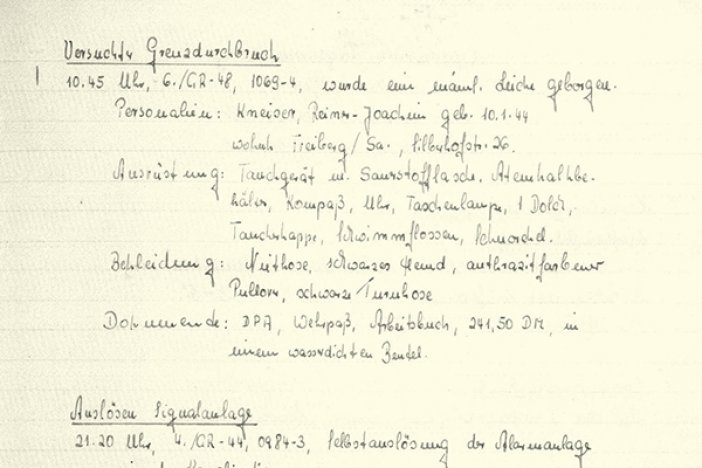 Versuchter Grenzdurchbruch
10.45 Uhr, 6./GR-48, 1069-4, wurde eine männl. Leiche geborgen.
Personalien: Kneiser, Reiner-Joachim geb. 10.1.44
wohnh Freiberg/Sa., Silberhofstr. 26.
Ausrüstung: Tauchgerät m. Sauerstofflasche, Atemkalkbe-
hälter, Kompaß, Uhr, Taschenlampe, 1 Dolch,
Taucherkappe, Schwimmflossen, Schnorchel.
Bekleidung: Niethose, schwarzes Hemd, anthrazitfarbener
Pullover, schwarze Turnhose
Dokumente: DPA, Wehrpaß, Arbeitsbuch, 241,50 DM, in
einem wasserdichten Beutel.
Auslösen Signalanlage
21.20 Uhr, 4./GR-44, 0984-3, Selbstauslösung der Alarmanlage